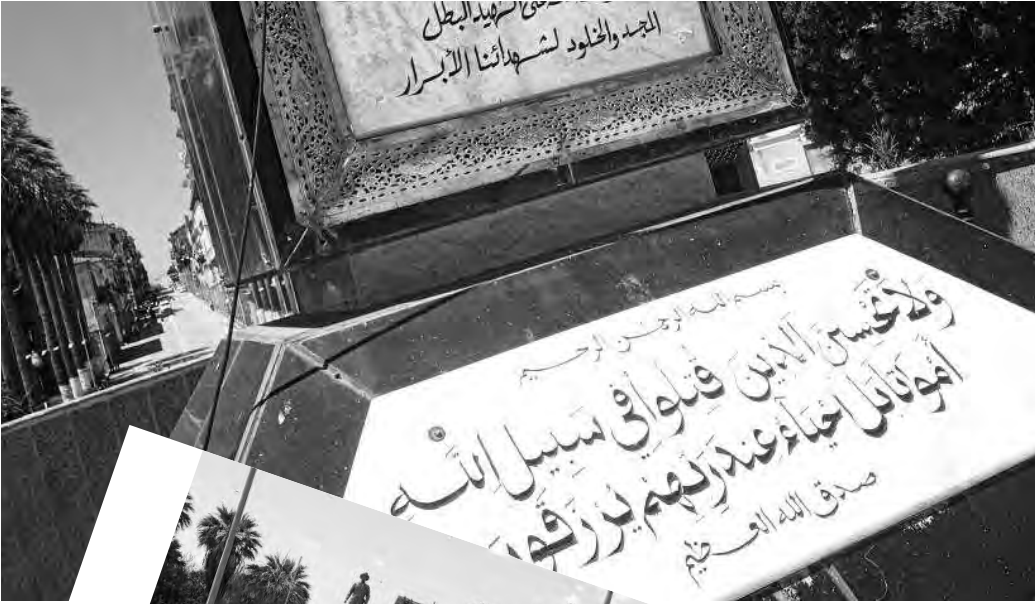 الشهيد البطل
المجد والخلود لشهدائنا الأبرار
بسم الله الرحمن الرحيم
ولا تحسبن الذين قتلوا في سبيل الله
أمواتا بل أحياء عند ربهم يرزقون
صدق الله العظيم